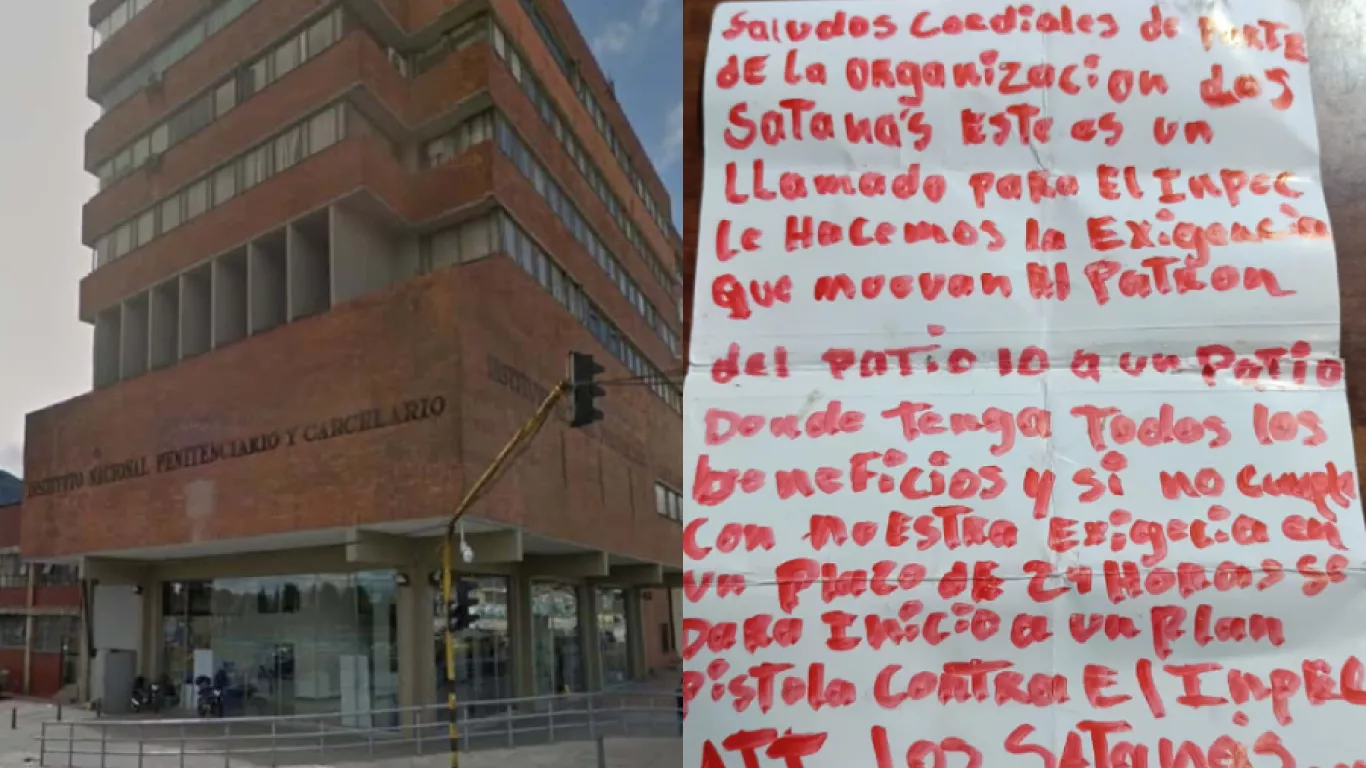 INSTITUTO NACIONAL PENITENCIARIO Y CARCELARIO
INSTITUTO
Saludos Cordiales de PARTE
dE La ORganizacion Los
SaTana's EsTe es un
LLamado para El Inpec
Le Hacemos la Exigencia
que muevan El PaTRon
del PaTio 10 a un PaTio
Donde Tenga Todos los
beneficios y si no cumple
Con nuEsTRa Exigecia en
un Plazo DE 24 Horas se
Dara Inicio a un Plan
PisTola ConTRa El InpEC
ATT Los SaTanas...